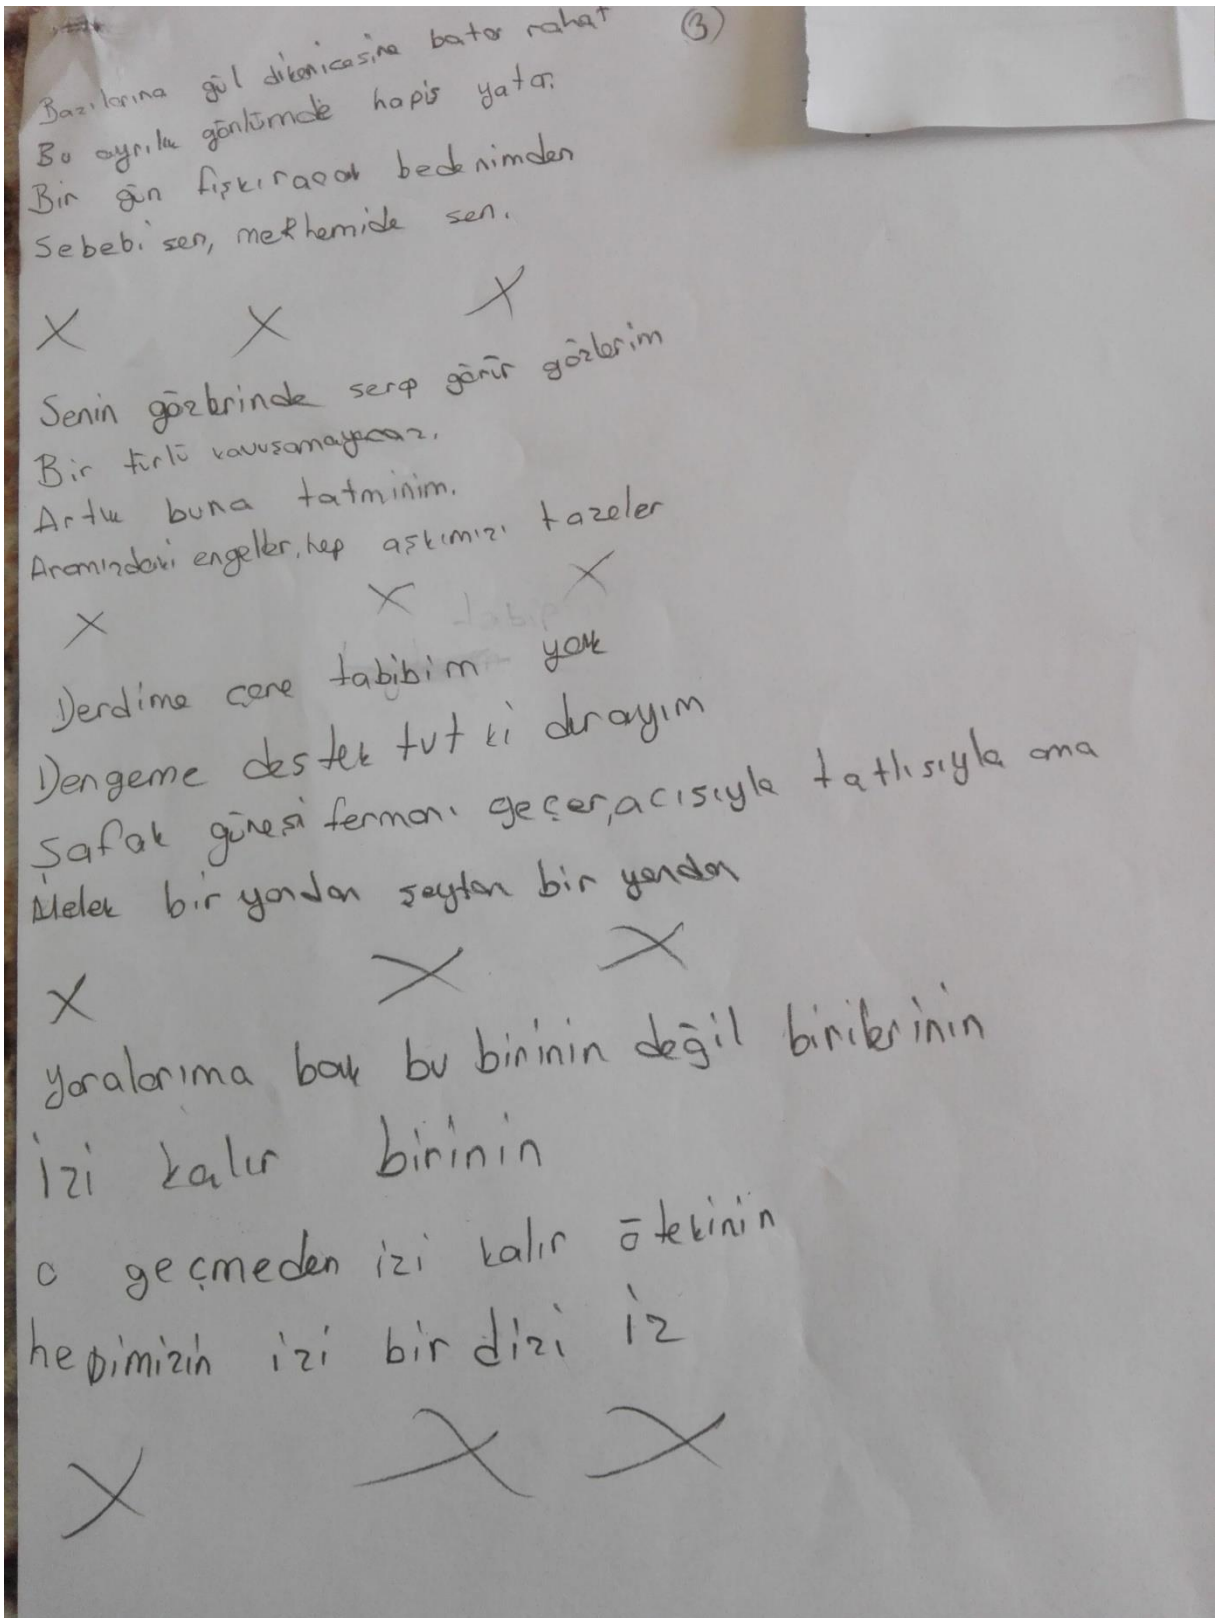 ③
Bazılarına gül dikenicesine batar rahat
Bu ayrılık gönlümde hapis yatar.
Bir gün fışkıracak bedenimden
Sebebi sen, melhemide sen.
X X X
Senin gözlerinde serap görür gözlerim
Bir türlü kavuşamayacaz.
Artık buna tatminim.
Aramızdaki engeller, hep aşkımızı tazeler
X X X
Derdime çare tabibim yok
Dengeme destek tut ki durayım
Şafak güneşi fermanı geçer, acısıyla tatlısıyla ama
Melek bir yandan şeytan bir yandan
X X X
yaralarıma bak bu birinin değil birilerinin
izi kalır birinin
o geçmeden izi kalır ötekinin
hepimizin izi bir dizi iz
X X X